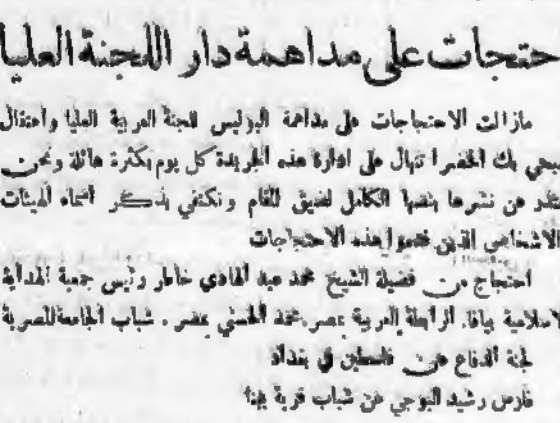 حتجات على مداهمة دار اللجنة العليا
مازالت الاحتجاجات على مداهمة البوليس للجنة العربية العليا واعتقال
بك الخضرا تنهال على ادارة هذه الجريدة كل يوم بكثرة هائلة ونحن
نعتذر عن نشرها بنصها الكامل لضيق المقام ونكتفي بذكر اسماء الهيئات
الاشخاص الذين قدموا هذه الاحتجاجات
احتجاج من فضيلة الشيخ محمد عبد الهادي خاطر رئيس جمعية الهداية
الاسلامية بيافا. الرابطة العربية بمصر. محمد الحسني بمصر. شباب الجامعة المصرية
لجنة الدفاع عن فلسطين في بغداد
فارس رشيد عن شباب قرية